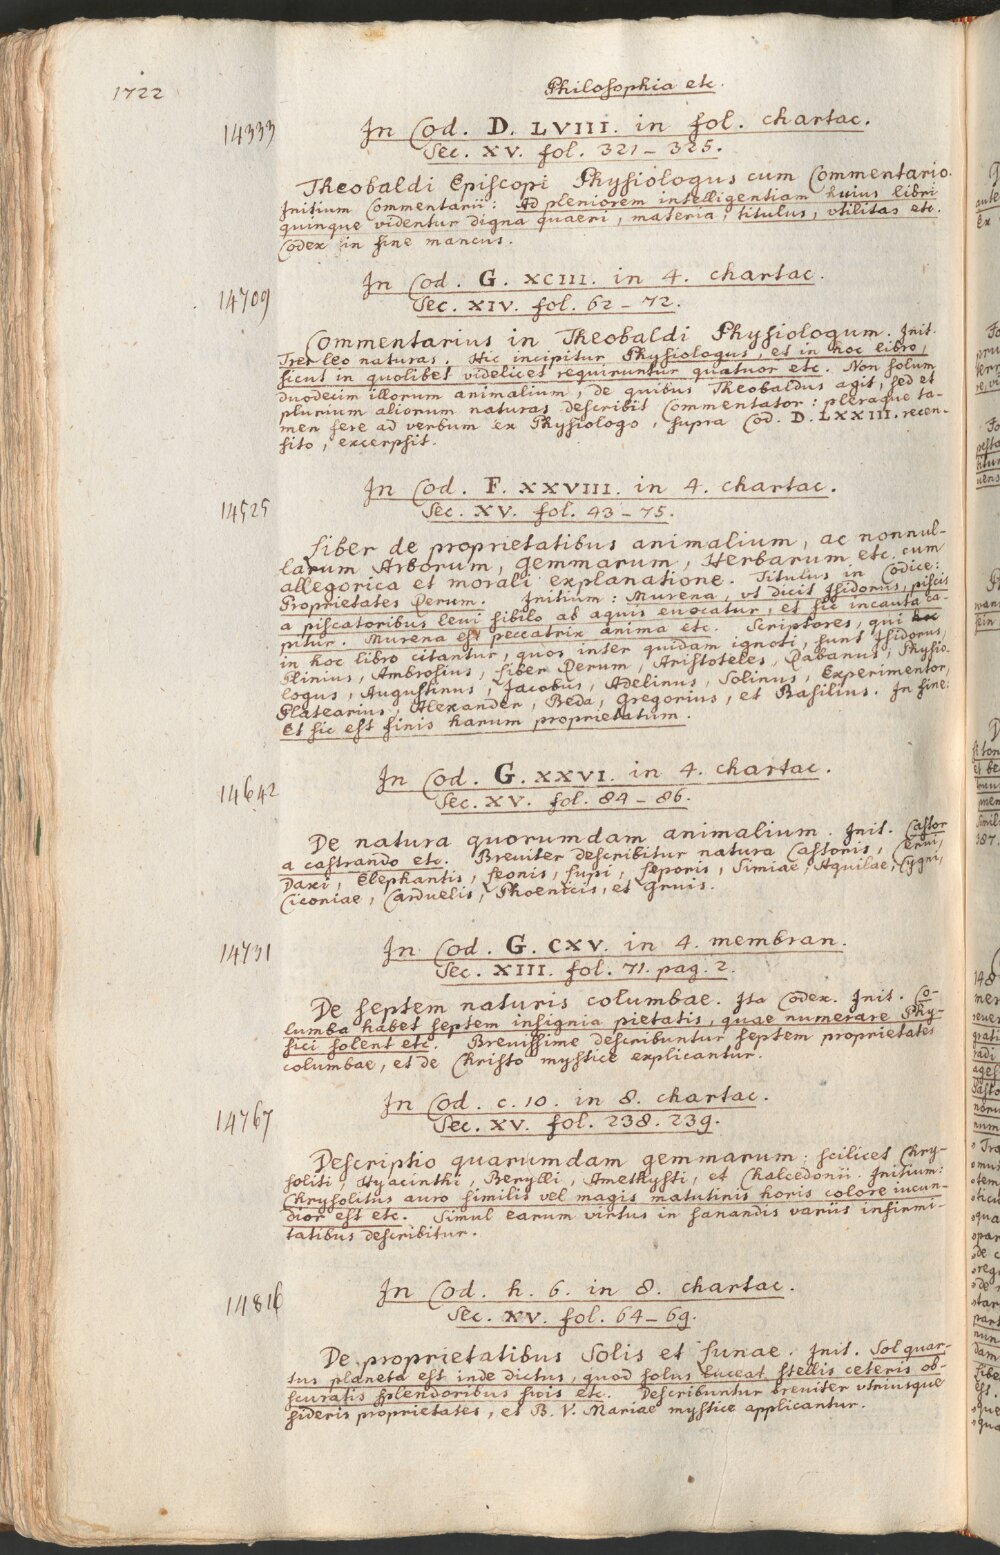 1722
Philosophia etc.
14333
In Cod. D. LVIII. in fol. chartac.
Sec. XV. fol. 321–325.
Theobaldi Episcopi Physiologus cum Commentario.
Initium Commentarii: Ad pleniorem intelligentiam huius libri
quinque videntur digna quaeri, materia, titulus, vtilitas etc.
Codex in fine mancus.
14709
In Cod. G. XCIII. in 4. chartac.
Sec. XIV. fol. 62–72.
Commentarius in Theobaldi Physiologum. Init.
Tres leo naturas. Hic incipitur Physiologus, et in hoc libro,
sicut in quolibet videlicet requiruntur quatuor etc. Non solum
duodecim illorum animalium, de quibus Theobaldus agit, sed et
plurium aliorum naturas describit Commentator: pleraque ta-
men fere ad verbum ex Physiologo, supra Cod. D. LXXIII. recen-
sito, excerpsit.
14525
In Cod. F. XXVIII. in 4. chartac.
Sec. XV. fol. 43–75.
Liber de proprietatibus animalium, ac nonnul-
larum Arborum, Gemmarum, Herbarum etc. cum
allegorica et morali explanatione. Titulus in Codice:
Proprietates Rerum. Initium: Murena, vt dicit Isidorus, piscis
a piscatoribus leui sibilo ab aquis euocatur, et sic incauta ca-
pitur. Murena est peccatrix anima etc. Scriptores, qui hoc
in hoc libro citantur, quos inter quidam ignoti, sunt Isidorus,
Plinius, Ambrosius, Liber Rerum, Aristoteles, Rabanus, Physio-
logus, Augustinus, Jacobus, Adelinus, Solinus, Experimentor,
Platearius, Alexander, Beda, Gregorius, et Basilius. In fine:
Et sic est finis harum proprietatum.
14642
In Cod. G. XXVI. in 4. chartac.
Sec. XV. fol. 84–86.
De natura quorumdam animalium. Init. Castor
a castrando etc. Breviter describitur natura Castoris, Cerui,
Daxi, Elephantis, Leonis, Lupi, Leporis, Simiae, Aquilae, Cygni,
Ciconiae, Carduelis, Phoenicis, et Gruis.
14731
In Cod. G. CXV. in 4. membran.
Sec. XIII. fol. 71. pag. 2.
De septem naturis columbae. Ita Codex. Init. Co-
lumba habet septem insignia pietatis, quae numerare Phy-
sici solent etc. Brevissime describuntur septem proprietates
columbae, et de Christo mystice explicantur.
14767
In Cod. c. 10. in 8. chartac.
Sec. XV. fol. 238. 239.
Descriptio quarumdam gemmarum: scilicet Chry-
soliti, Hyacinthi, Berylli, Amethysti, et Chalcedonii. Initium:
Chrysolitus auro similis vel magis matutinis horis colore iucun-
dior est etc. Simul earum virtus in sanandis variis infirmi-
tatibus describitur.
14816
In Cod. h. 6. in 8. chartac.
Sec. XV. fol. 64–69.
De proprietatibus Solis et Lunae. Init. Sol quar-
tus planeta est inde dictus, quod solus luceat stellis ceteris ob-
scuratis splendoribus suis etc. Describuntur breuiter vtriusque
sideris proprietates, et B. V. Mariae mystice applicantur.